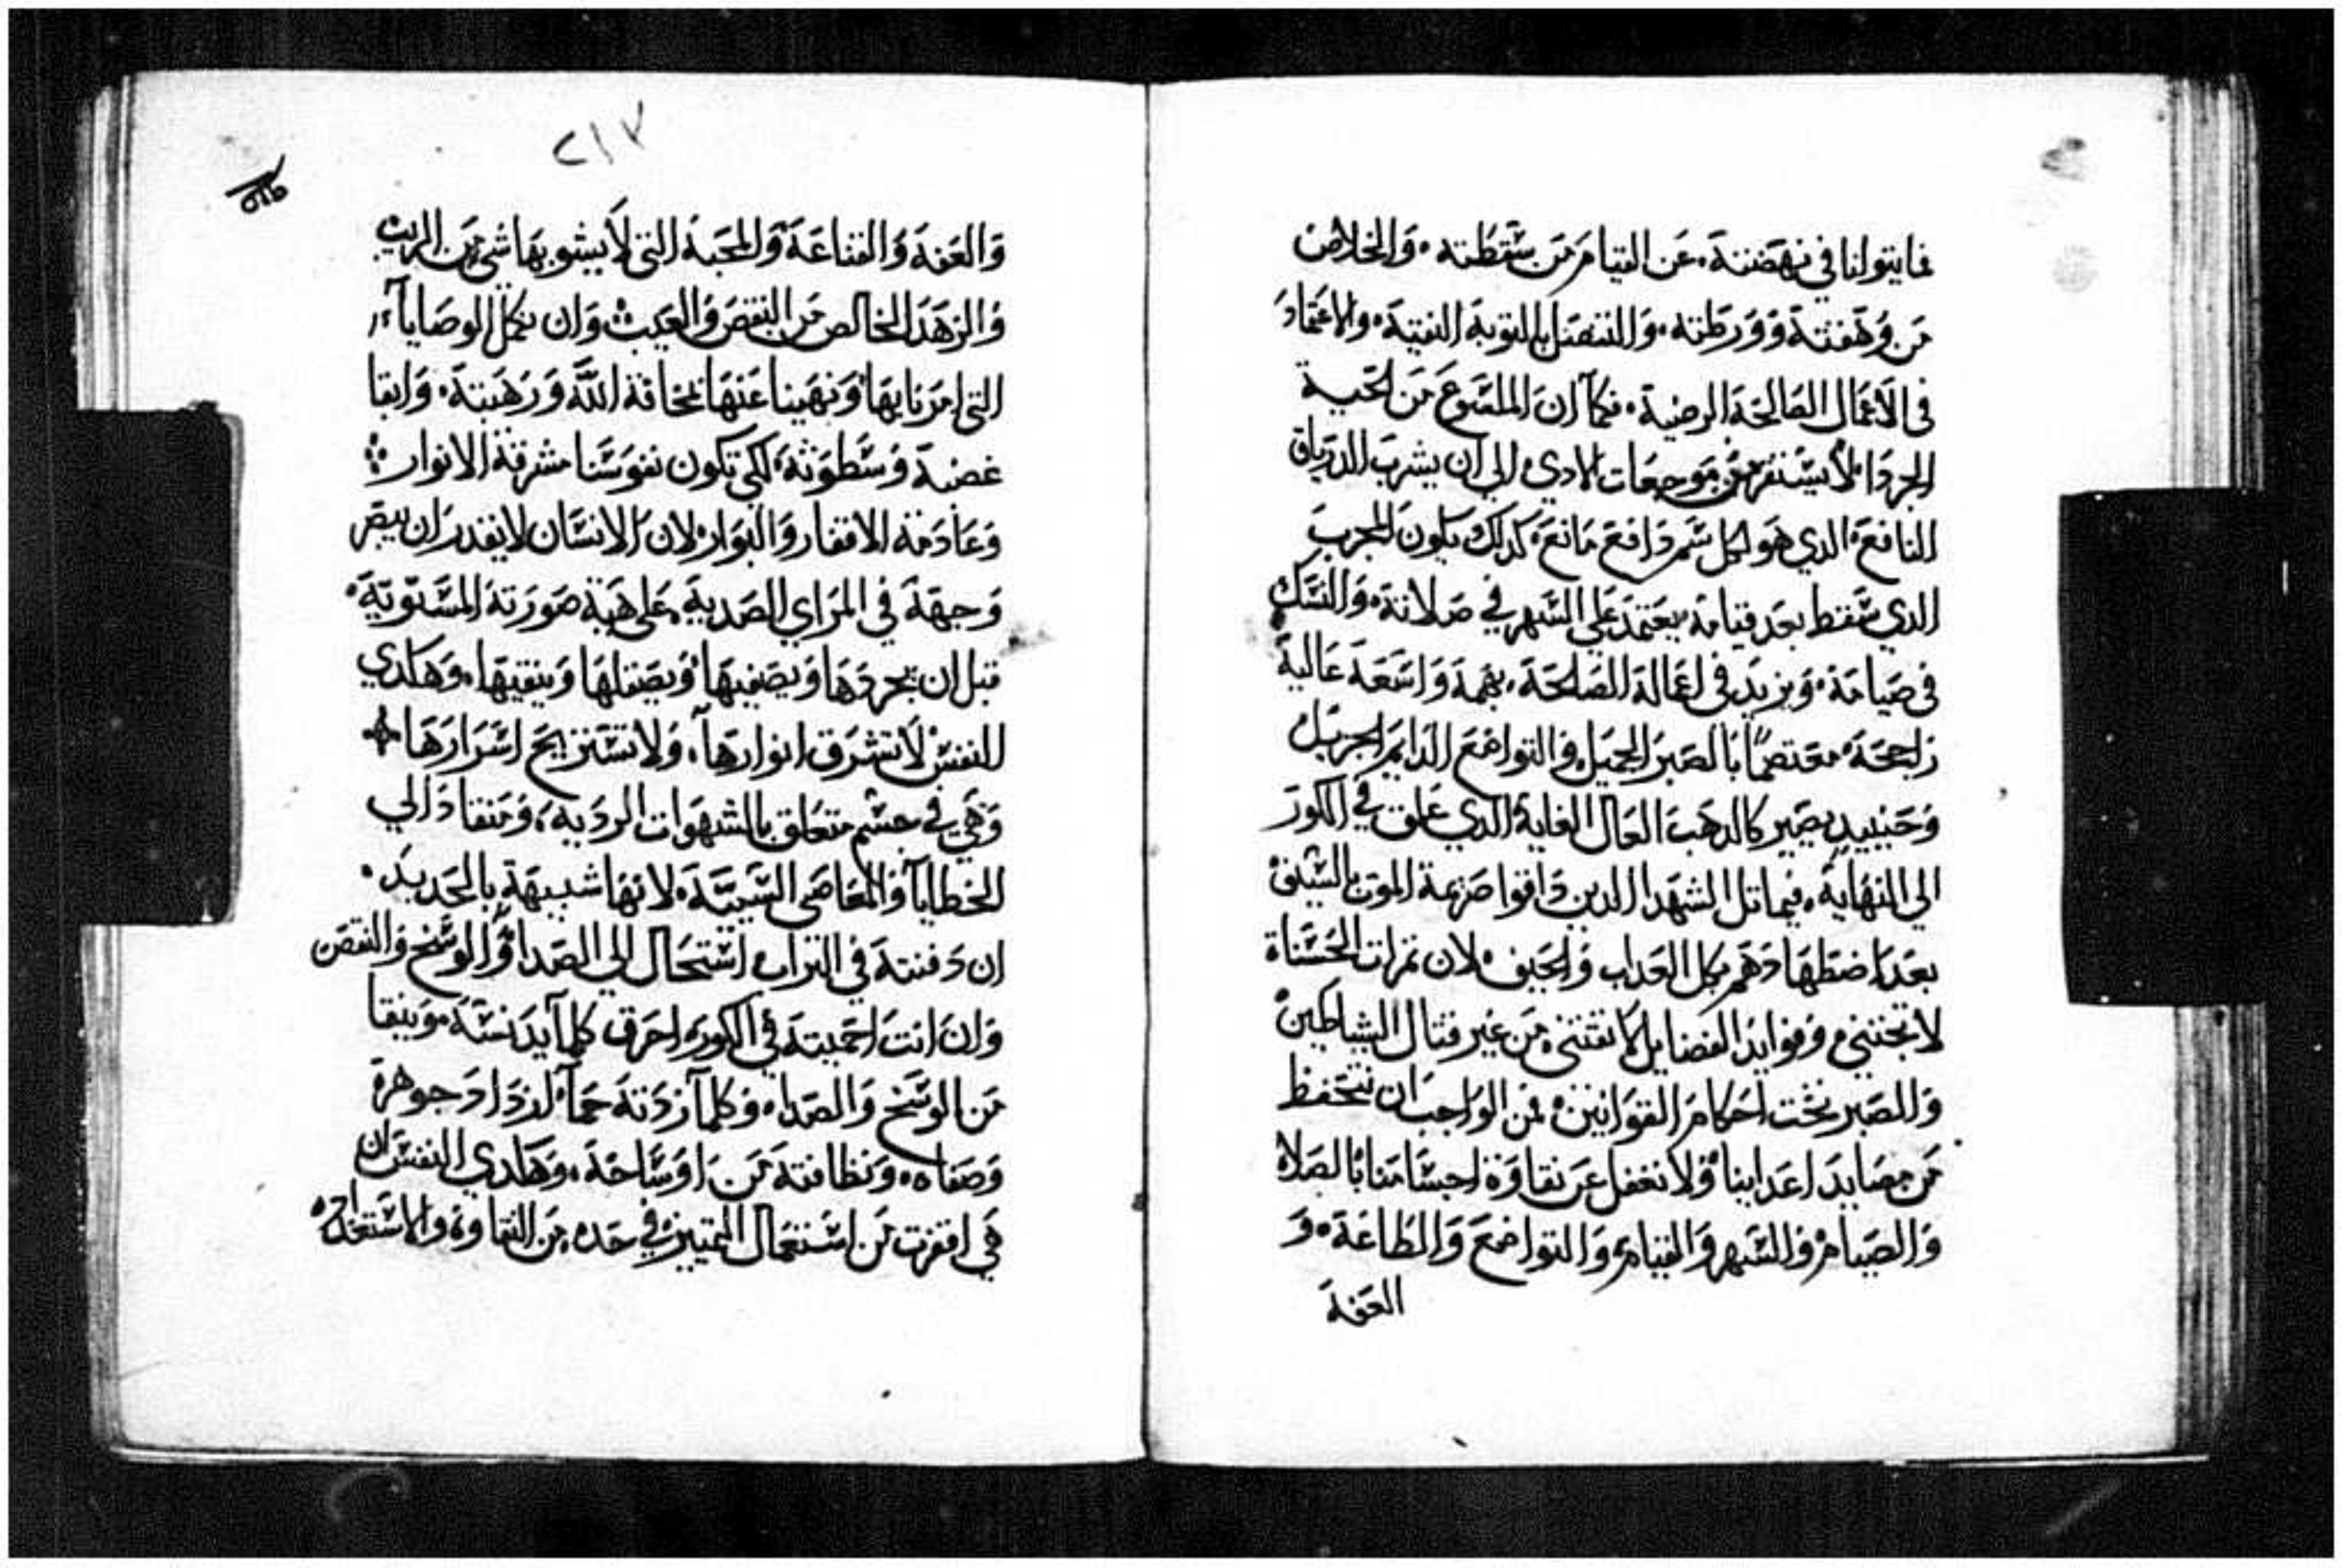 فما يتولنا في نهضته، عن القيام من سقطته، والخلاص
من وهفته وورطته، والتنصل بالتوبة النقية، والاعتماد
في الاعمال الصالحة الرضية، فكما ان الملسوع من الحية
الجردا لا يستفر من موجعات الادي، الي ان يشرب الدرياق
النافع، الدي هو لكل سم دافع مانع، كدلك يكون المجرب
الدي سقط بعد قيامه، يعتمد علي السهر في صلاته، والنسك
في صيامه، ويزيد في اعماله الصالحة، بهمة واسعة عالية
راجحة، معتصمًا بالصبر الجميل، والتواضع الدايم الجزيل
وحينييد يصير كالدهب العال الغاية، الدي علق في الكور
الي النهاية، فيماتل الشهدا الدين داقوا صرعة الموت بالسيف
بعد اضطهادهم بكل العداب والحيف، لان تمرات الحسناة
لا تجتني، وفوايد الفضايل لا تقتني، من غير قتال الشياطين
والصبر تحت احكام القوانين، فمن الواجب ان نتحفظ
من مصايد اعداينا، ولا نغفل عن نقاوة اجسامنا بالصلاه
والصيام، والسهر والقيام، والتواضع والطاعة، و
العفة
٢١٧
والعفة والقناعة والمحبة التي لا يشوبها شي من الريب
والزهد الخالص من النقص والعيب، وان نكمل الوصايا
التي امرنا بها، ونهينا عنها مخافة الله ورهبته، واتقا
غضبه وسطوته، لكي تكون نفوسنا مشرقة الانوار
وعادمة الافتقار والبوار، لان الانسان لا يقدر ان يبصر
وجهه في المراي الصدية، علي هية صورته المستوية،
قبل ان يجردها ويصفيها، ويصقلها وينقيها، وهكدي
النفس لا تشرق انوارها، ولا تستريح اسرارها
وهي في جسم متعلق بالشهوات الردية، ومنقاد الي
الخطايا والمعاصي السيية، لانها شبيهة بالحديد،
ان دفنته في التراب استحال الي الصدا والوسخ والنقص
وان انت احميته في الكور، احرق كلما يدنسه، وينقا
من الوسخ والصدا، وكلما زدته حما، ازداد جوهرة
وصفاه، ونظافته من اوساخه، وهكدي النفس ان
هي افتقرت من استعمال التمييز في حده، من النقاوة، والاستعداد